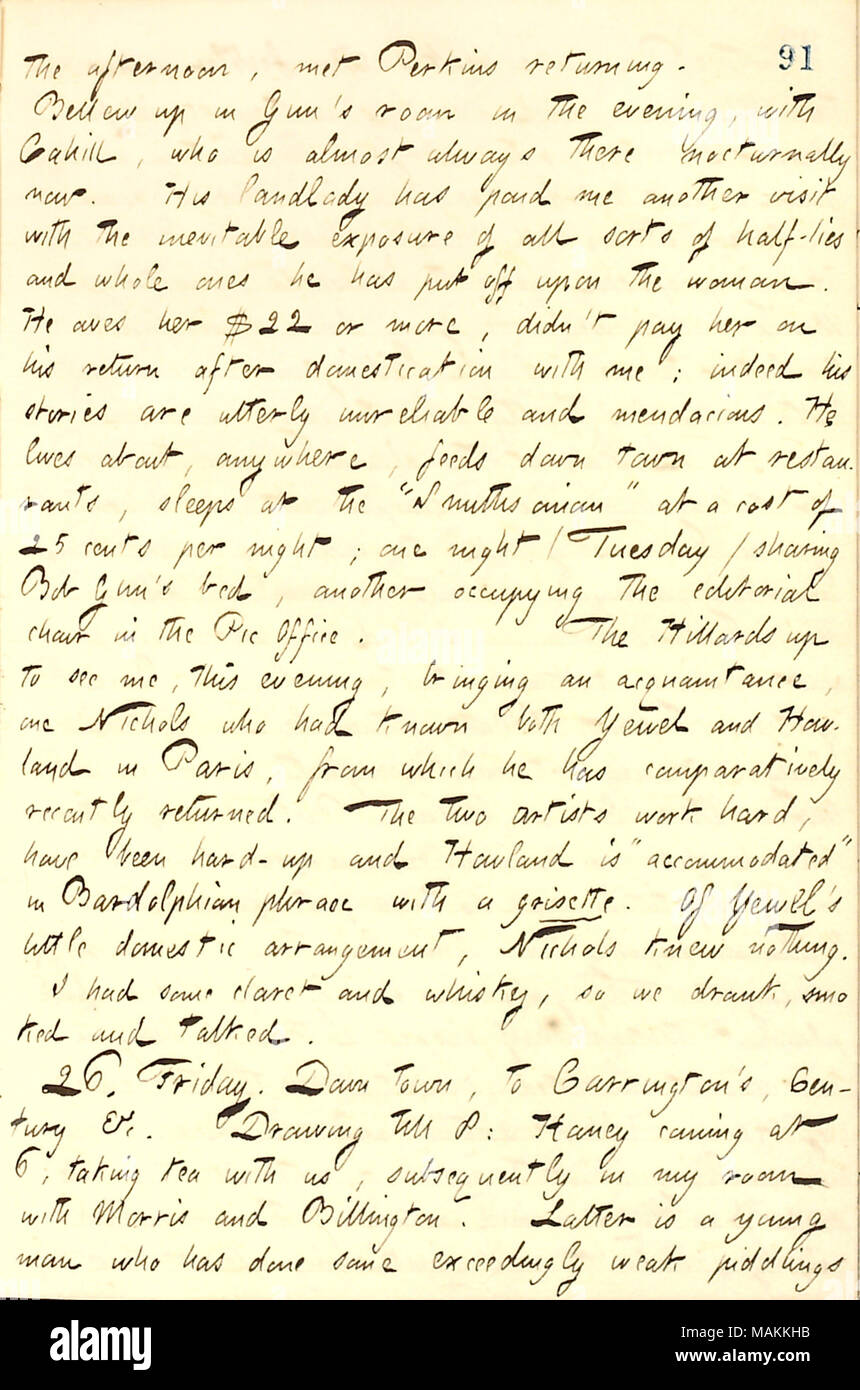 91
the afternoon, met Perkins returning.
Bellew up in Gun's room in the evening, with
Cahill, who is almost always there nocturnally
now. His landlady has paid me another visit
with the inevitable exposure of all sorts of half-lies
and whole ones he has put off upon the woman.
He owes her $22 or more, didn't pay her on
his return after domestication with me; indeed his
stories are utterly unreliable and mendacious. He
lives about, anywhere, feeds down town at restau-
rants, sleeps at the "Smithsonian" at a cost of
25 cents per night; one night / Tuesday / sharing
Bob Gun's bed, another occupying the editorial
chair in the Pic Office. The Hillards up
to see me, this evening, bringing an acquaintance,
one Nichols who had known both Yewel and How-
land in Paris, from which he has comparatively
recently returned. The two artists work hard,
have been hard-up and Howland is "accommodated"
in Bardolphian phrase with a grisette. Of Yewel's
little domestic arrangement, Nichols knew nothing.
I had some claret and whiskey, so we drank, smo
ked and talked.
26. Friday. Down town, to Carrington's, Cen-
tury &c. Drawing till 8: Haney coming at
6, taking tea with us, subsequently in my room
with Morris and Billington. Latter is a young
man who has done some exceedingly weak piddlings
alamy
Image ID: MAKKHB
www.alamy.com